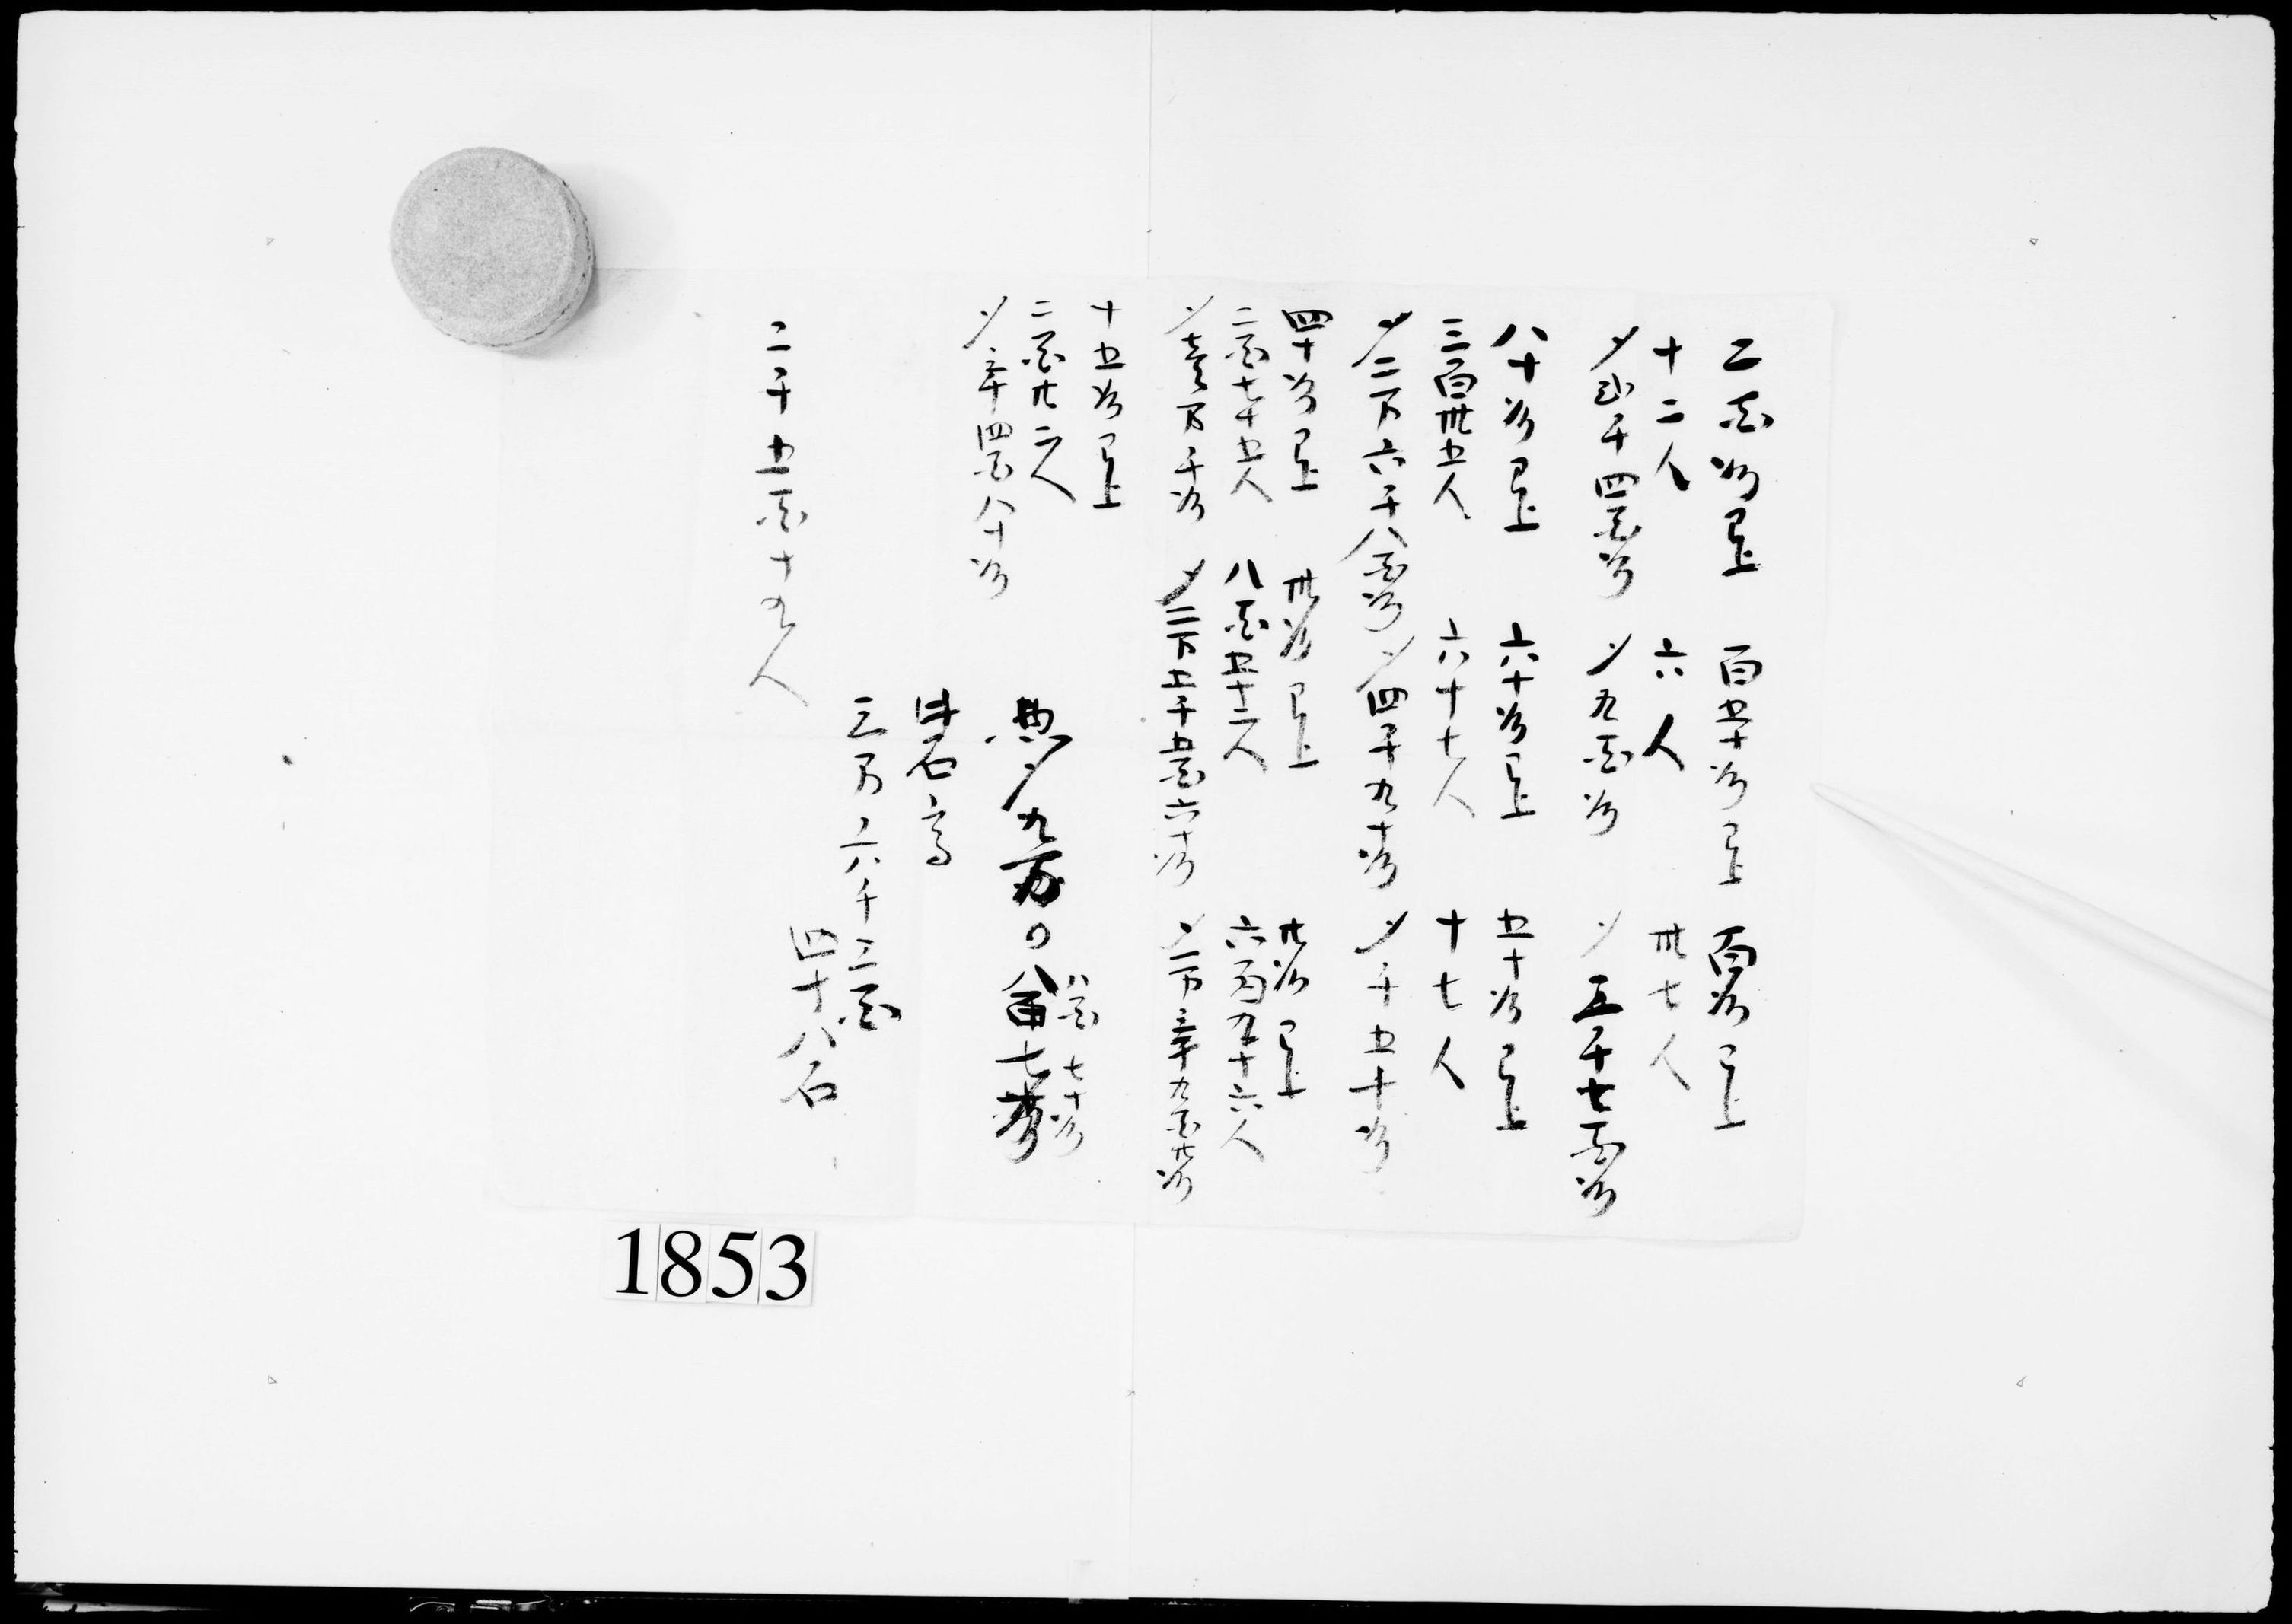 二百俵已上
十二人
〆弐千四百俵
百五十俵已上
六人
〆九百俵
百俵已上
卅七人
〆三千七百俵
八十俵已上
三百卅五人
〆二万六千八百俵
六十俵已上
六十七人
〆四千九十俵
五十俵已上
十七人
〆千五十俵
四十俵已上
二百七十五人
〆壱万千俵
卅俵已上
八百五十二人
〆二万五千五百六十俵
廿俵已上
六百九十六人
〆一万三千九百廿俵
十五俵已上
二百廿二人
〆三千四百八十俵
惣〆九万〇八百七十俵
八百七十俵
此石高
三万六千三百
四十八石
二千五百十九人
1853